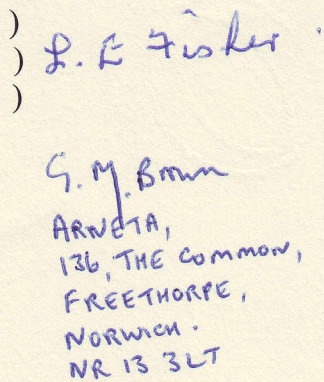 )
) L. E Fisher.
)
G. M. Brown
ARNETA,
136, THE COMMON,
FREETHORPE,
NORWICH.
NR 13 3LT